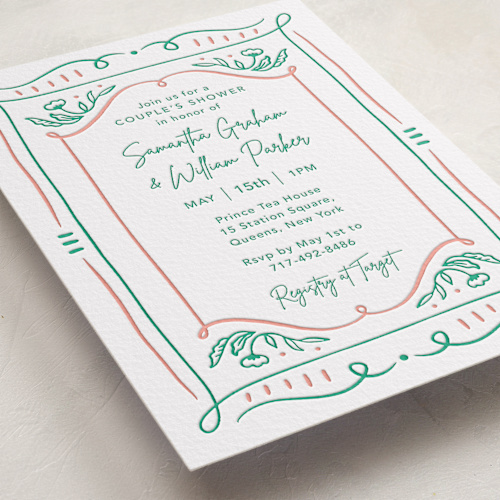 Join us for a
COUPLE'S SHOWER
in honor of
Samantha Graham
& William Parker
MAY | 15th | 1PM
Prince Tea House
15 Station Square,
Queens, New York
Rsvp by May 1st to
717.492.8486
Registry at Target